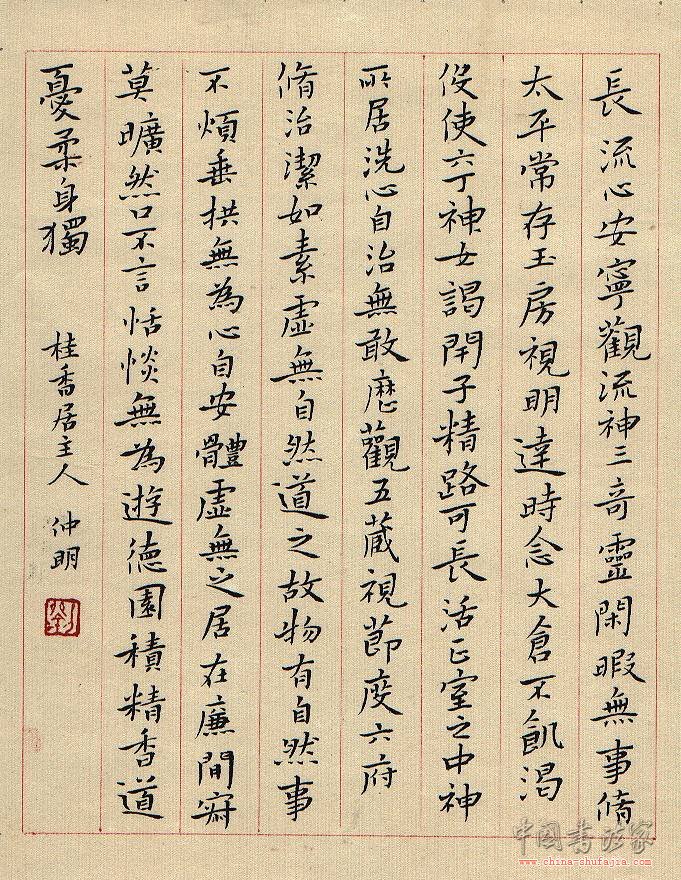 長流心安寧觀流神三奇靈閑暇無事脩
太平常存玉房視明達時念大倉不飢渴
役使六丁神女謁閇子精路可長活正室之中神
所居洗心自治無敢厯觀五藏視節度六府
脩治潔如素虛無自然道之故物有自然事
不煩垂拱無為心自安體虛無之居在廉間寂
莫曠然口不言恬惔無為遊德園積精香道
憂柔身獨
桂香居主人 仲明
劉
中国书法家
www.china-shufajia.com